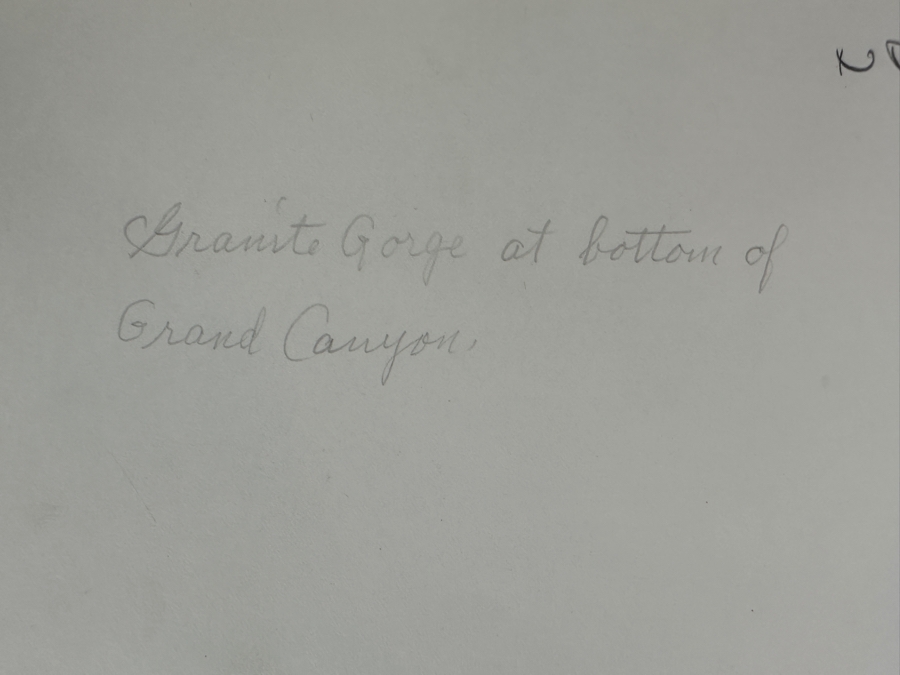 Granite Gorge at bottom of
Grand Canyon.